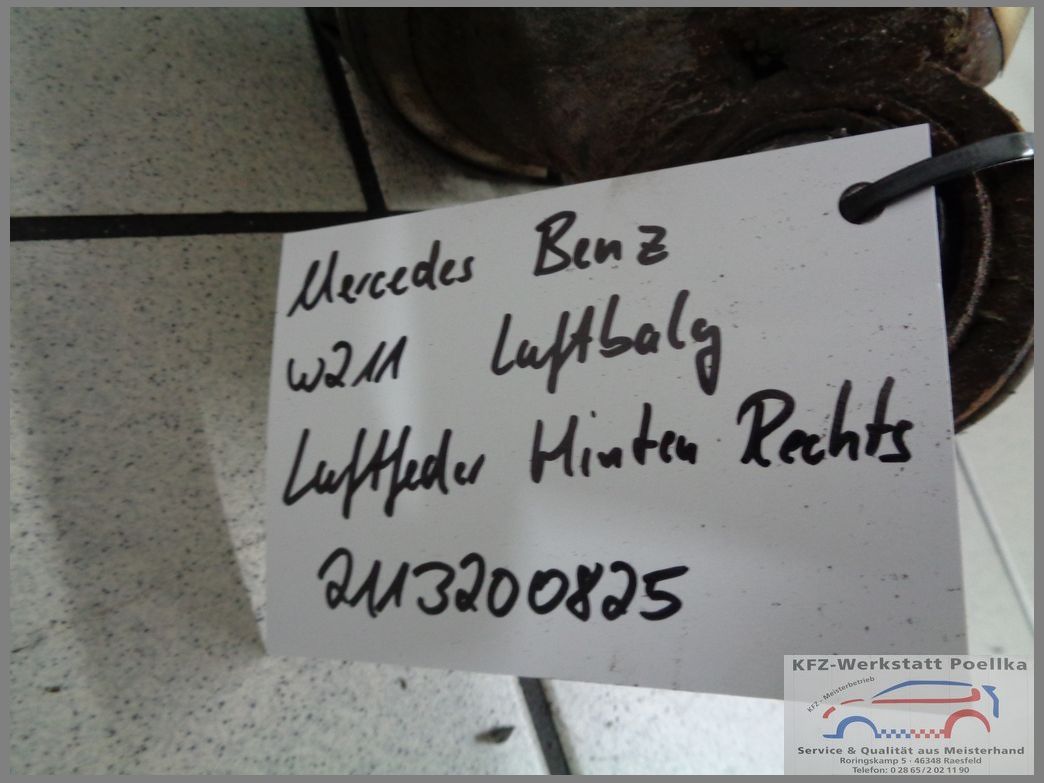 Mercedes Benz
W211 Luftbalg
Luftfeder Hinten Rechts
2113200825
KFZ-Werkstatt Poellka
KFZ - Meisterbetrieb
Service & Qualität aus Meisterhand
Roringskamp 5 · 46348 Raesfeld
Telefon: 0 28 65 / 2 02 11 90